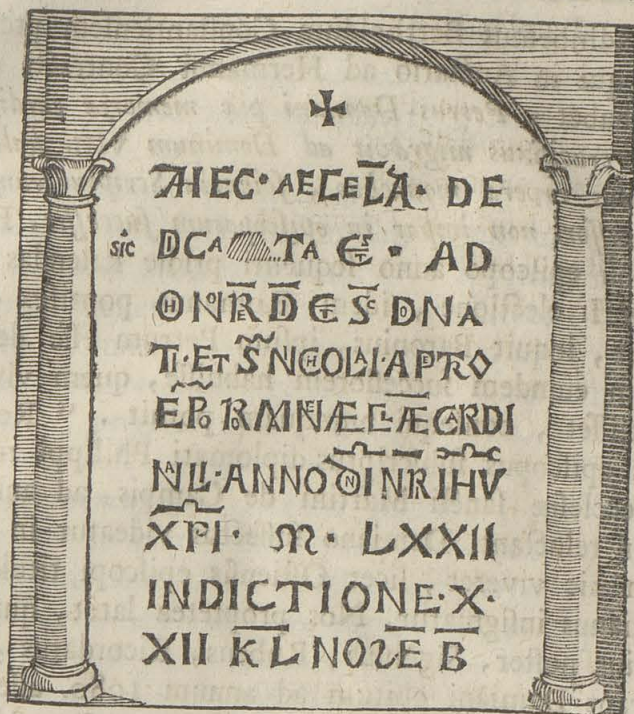 ✠
HEC· AECELA· DE
sic DCA TA EST · AD
HONORE D ET SC DONA
TI· ET S NICHOLAI· A PETRO
EPO ROMANE ECLÆ CARDI
NALI· ANNO DNI NRI IHV
XPI· M· LXXII
INDICTIONE·X·
XII KL NOVE B